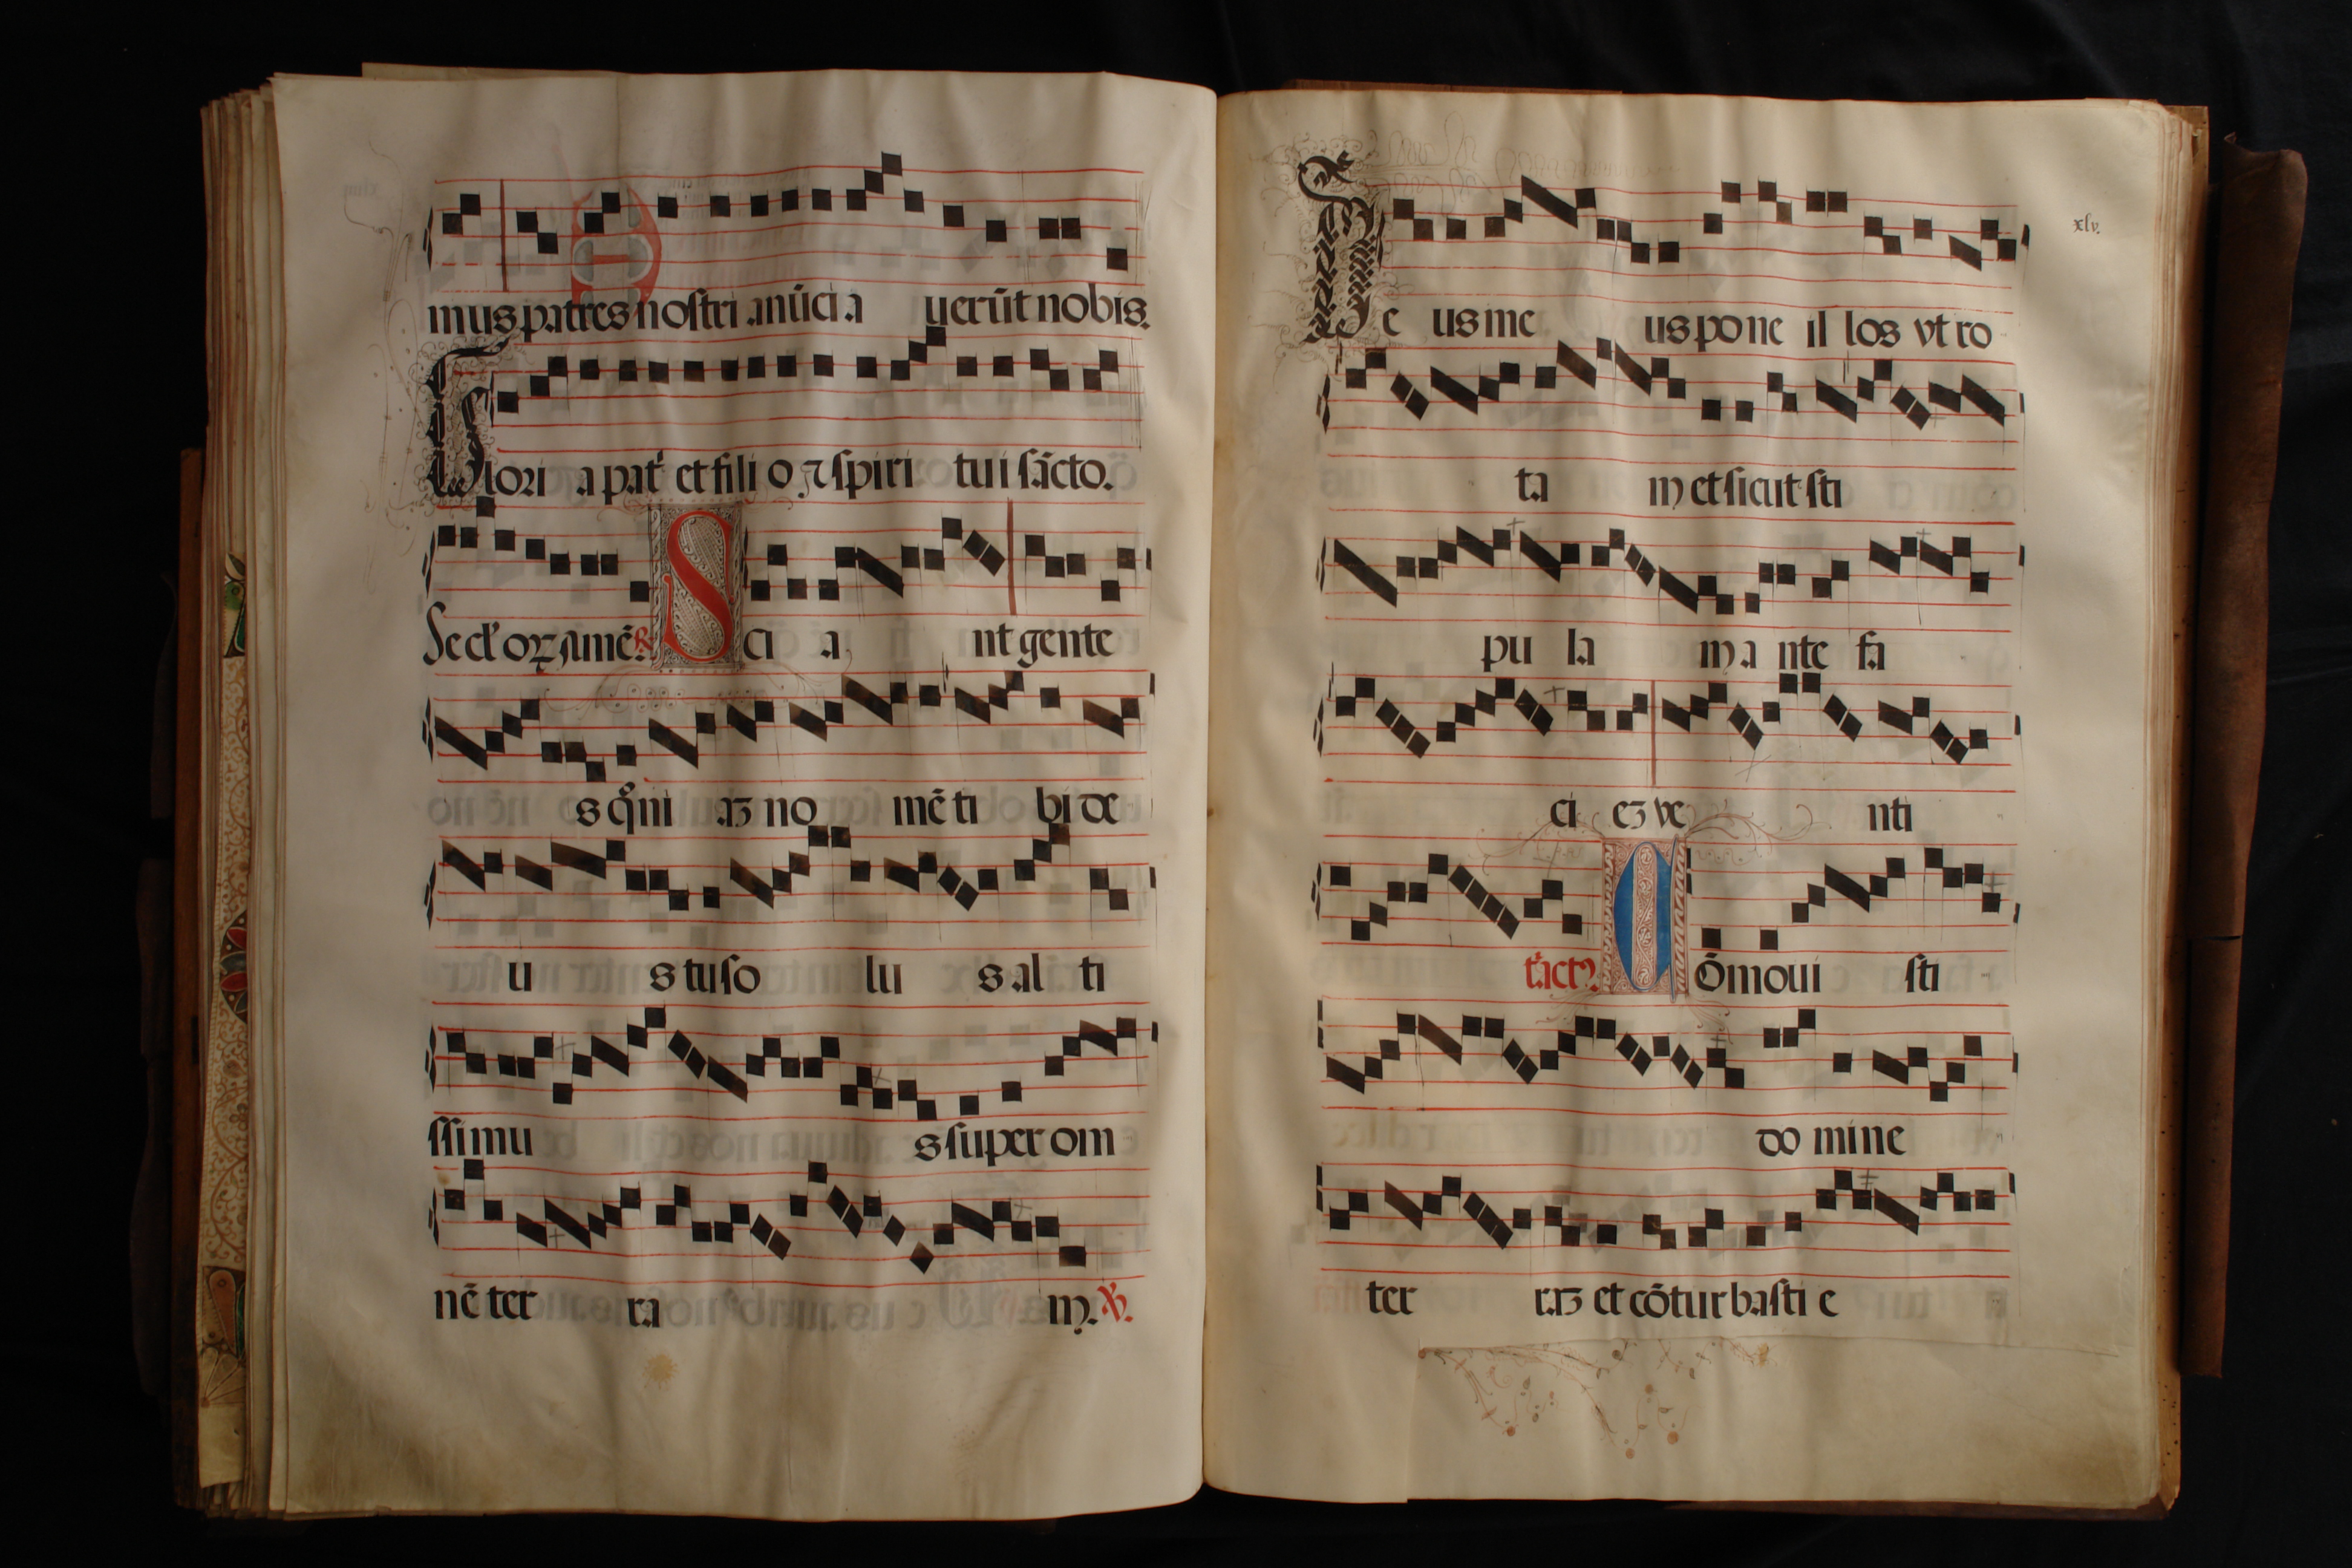 mus patres nostri anūci a uerūt nobis.
Glori a pat̄ et fili o ⁊ spiri tui sācto.
Secl̄oꝝ amē. ℟. S ci a nt gente
s qm̄ ni aʒ no mē ti bi de
u s tu so lu s al ti
ssi mu s super om
nē ter ra m. ℣.
xlv.
De us me us pone il los vt ro
ta m et sicut sti
pu la m a nte fa
ci eʒ ve nti
tract᷒. Cōmoui sti
do mine
ter raʒ et cōturbasti e